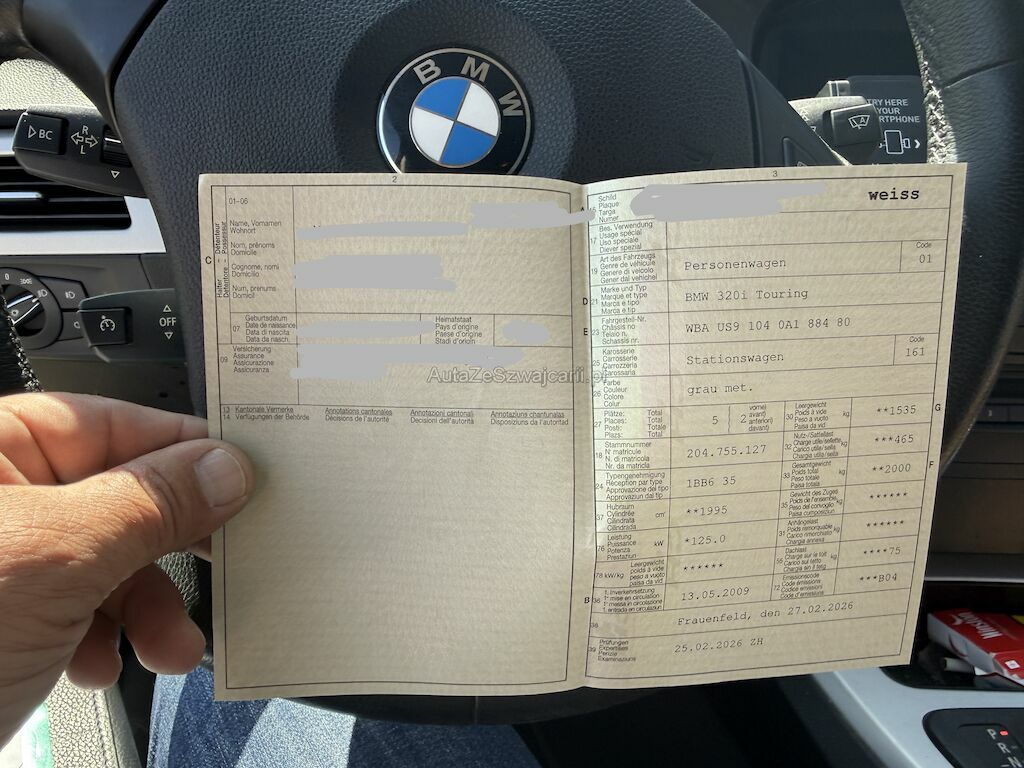 BMW
BC
R
L
OFF
TRY HERE
YOUR
2
3
01-06
Halter – Détenteur
Detentore – Possessur
C
Name, Vornamen
Wohnort
Nom, prénoms
Domicile
Cognome, nomi
Domicilio
Num, prenums
Domicil
07
Geburtsdatum
Date de naissance
Data di nascita
Data da nasch.
Heimatstaat
Pays d'origine
Paese d'origine
Stadi d'origin
09
Versicherung
Assurance
Assicurazione
Assicuranza
13
14
Kantonale Vermerke
Verfügungen der Behörde
Annotations cantonales
Décisions de l'autorité
Annotazioni cantonali
Decisioni dell'autorità
Annotaziuns chantunalas
Disposiziuns da l'autoritad
A
15
Schild
Plaque
Targa
Numer
weiss
17
Bes. Verwendung
Usage spécial
Uso speciale
Diever spezial
19
Art des Fahrzeugs
Genre de véhicule
Genere di veicolo
Gener dal vehichel
Personenwagen
Code
01
D
21
Marke und Typ
Marque et type
Marca e tipo
Marca e tip
BMW 320i Touring
E
23
Fahrgestell-Nr.
Châssis no
Telaio n.
Schassis nr.
WBA US9 104 0A1 884 80
25
Karosserie
Carrosserie
Carrozzeria
Carossaria
Stationswagen
Code
161
26
Farbe
Couleur
Colore
Colur
grau met.
27
Plätze: Total
Places: Total
Posti: Totale
Plazs: Total
5
2
vorne)
avant)
anteriori)
davant)
30
Leergewicht
Poids à vide
Peso a vuoto
Paisa da vid
kg
**1535
G
18
Stammnummer
N° matricule
N. di matricola
Nr. da matricla
204.755.127
32
Nutz-/Sattellast
Charge utile/sellette
Carico utile/sella
Chargia utila/sella
kg
***465
24
Typengenehmigung
Réception par type
Approvazione del tipo
Approvaziun dal tip
1BB6 35
33
Gesamtgewicht
Poids total
Peso totale
Paisa totala
kg
**2000
F
37
Hubraum
Cylindrée
Cilindrata
Cilindrada
cm³
**1995
35
Gewicht des Zuges
Poids de l'ensemble
Peso del convoglio
Paisa cumposiziun
kg
******
76
Leistung
Puissance
Potenza
Prestaziun
kW
*125.0
31
Anhängelast
Poids remorquable
Carico rimorchiato
Chargia annexa
kg
******
78 kW/kg
Leergewicht
poids à vide
peso a vuoto
paisa da vid
******
55
Dachlast
Charge sur le toit
Carico sul tetto
Chargia sin il tetg
kg
****75
B
36
1. Inverkehrsetzung
1re mise en circulation
1a messa in circolazione
1. entrada en circulaziun
13.05.2009
72
Emissionscode
Code émissions
Codice emissioni
Code d'emissiuns
***B04
38
Frauenfeld, den 27.02.2026
39
Prüfungen
Expertises
Perizie
Examinaziuns
25.02.2026 ZH
AutaZeSzwajcarii.pl
P
R
N